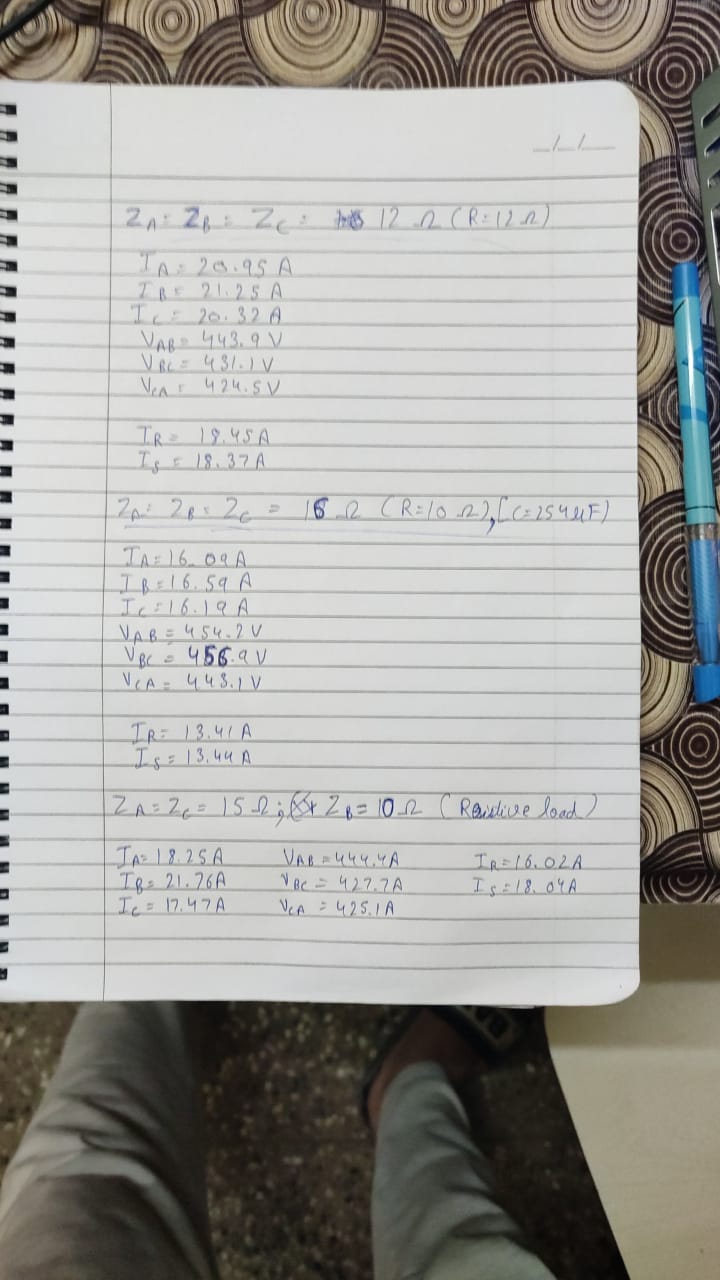 _/_/_
Z_A = Z_B = Z_C = 12 Ω (R=12Ω)
I_A = 20.95 A
I_B = 21.25 A
I_C = 20.32 A
V_AB = 443.9 V
V_BC = 431.1 V
V_CA = 424.5 V
I_R = 18.45A
I_S = 18.37A
Z_A = Z_B = Z_C = 16 Ω (R=10 Ω), [C=254μF)
I_A = 16.09A
I_B = 16.59 A
I_C = 16.19 A
V_AB = 454.2 V
V_BC = 456.9 V
V_CA = 443.1 V
I_R = 13.41 A
I_S = 13.44 A
Z_A = Z_C = 15 Ω; Z_B = 10 Ω (Resistive load)
I_A = 18.25A V_AB = 444.4A I_R = 16.02A
I_B = 21.76A V_BC = 427.7A I_S = 18.04A
I_C = 17.47A V_CA = 425.1A